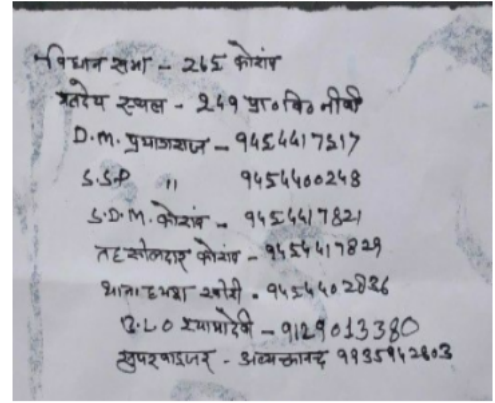 विधान सभा - 265 कोरांव
मतदेय स्थल - 249 प्रा० वि० नीवी
D.M. प्रयागराज - 9454417517
S.S.P " 9454400248
S.D.M. कोरांव - 9454417821
तहसीलदार कोरांव - 9454417829
थाना खीरी - 9454402826
B.L.O श्यामादेवी - 9129013380
सुपरवाइजर - 9935942603